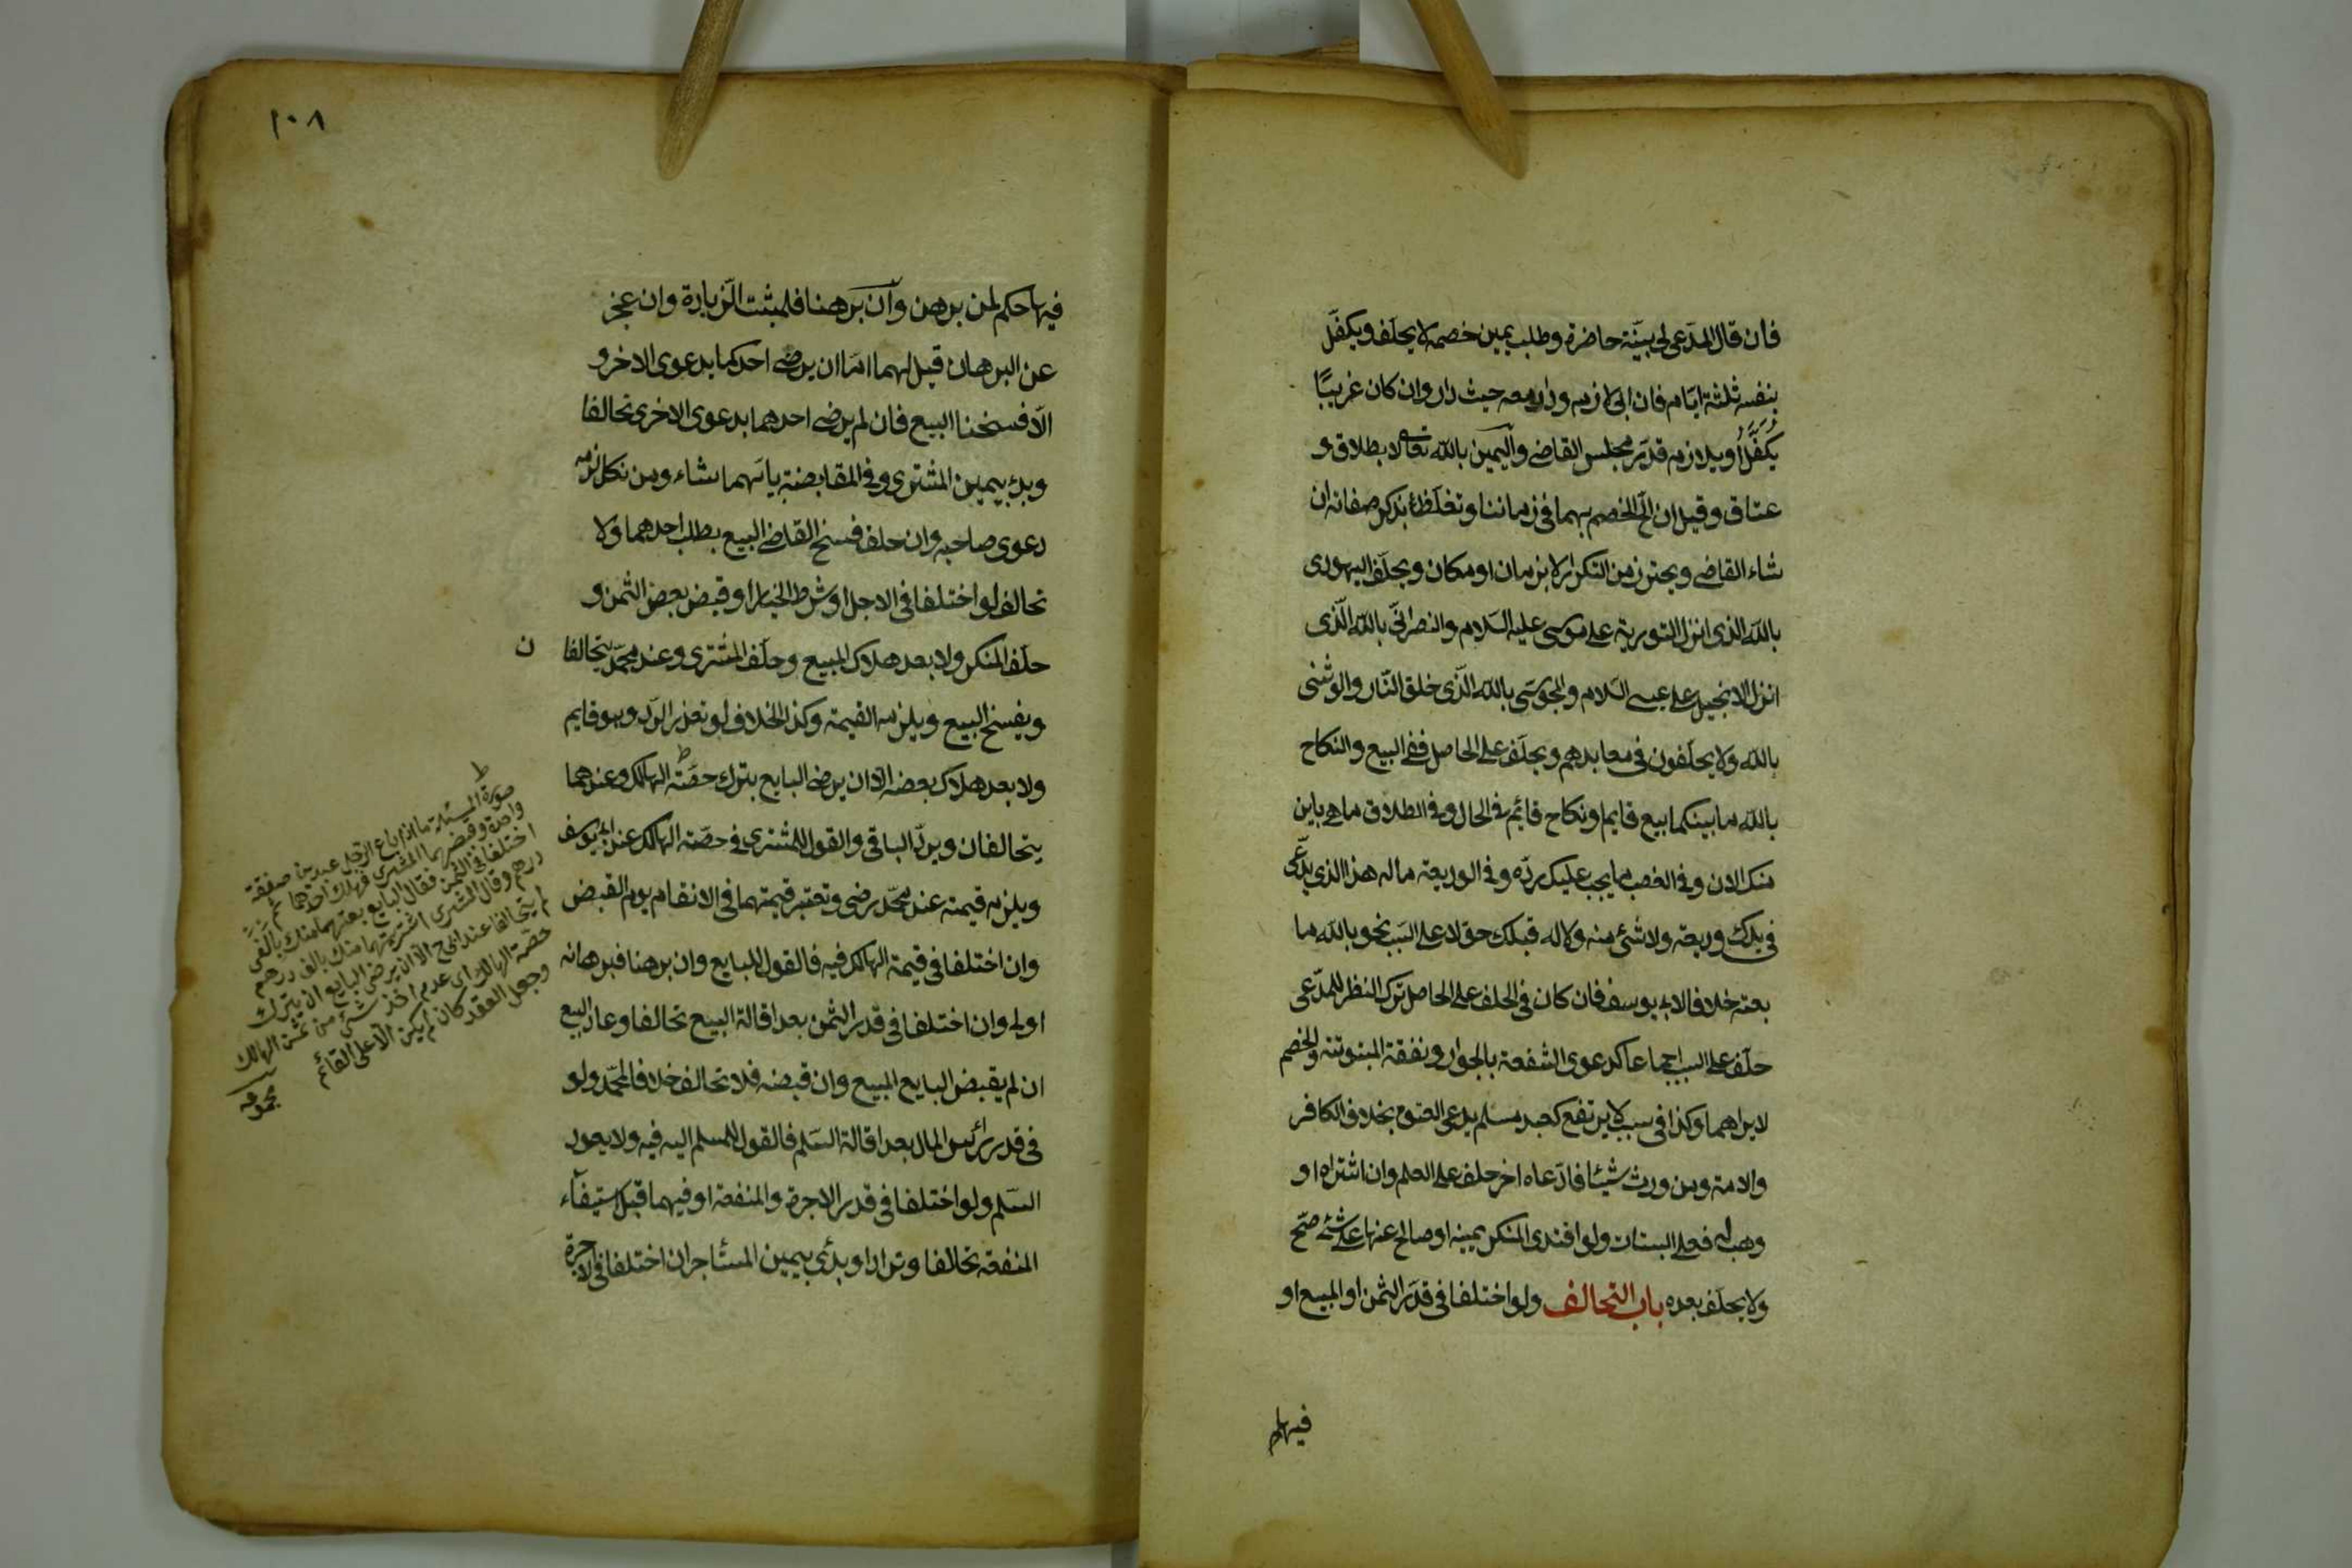 فان قال المدّعى لى بيّنة حاضرة وطلب يمين خصمه لا يحلّف ويكفّل
بنفسه ثلثة ايّام فان ابى لازمه ودار معه حيث دار وان كان غريبًا
يكفّل او يلازمه قدر مجلس القاضى واليمين بالله تعالى لا بطلاق و
عتاق وقيل ان الحّ الخصم بهما فى زماننا وتغلّظ بذكر صفاته ان
شاء القاضى ويحترز من التكرار لا بزمان او مكان ويحلّف اليهودى
بالله الذى انزل التورية على موسى عليه السّلام والنصرانىّ بالله الّذى
انزل الانجيل على عيسى السّلام والمجوسى بالله الذّى خلق النّار والوثنى
بالله ولا يحلّفون فى معابدهم ويحلّف على الحاصل ففى البيع والنكاح
بالله ما بينكما بيع قايم او نكاح قائم فى الحال وفى الطلاق ما هى باين
منك الان وفى الغصب ما يجب عليك ردّه وفى الوديعة ماله هذا الذى يدّعى
فى يدك وديعة ولا شئ منه ولا له قبلك حق لا على السّبب نحو بالله ما
بعته خلافا لابى يوسف فان كان فى الحلف على الحاصل ترك النظر للمدّعى
حلّف على السبب اجماعا كدعوى الشفعة بالجوار ونفقة المبتوتة والخصم
لا يراهما وكذا فى سبب لا يرتفع كعبد مسلم يدعى العتق بخلاف الكافر
والامة ومن ورث شيئا فادّعاه اخر حلف على العلم وان اشتراه او
وهب له فعلى البتات ولو افتدى المنكر يمينه او صالح عنها على شئ صحّ
ولا يحلّف بعده باب التحالف ولو اختلفا فى قدر الثمن او المبيع او
١٠٨
فيها حكم لمن برهن وان برهنا فلمثبت الزيادة وان عجز
عن البرهان قيل لهما امّا ان يرضى احدكما بدعوى الاخر و
الّا فسخنا البيع فان لم يرضى احدهما بدعوى الاخرى تحالفا
وبدئ بيمين المشترى وفى المقابضة بايّهما شاء ومن نكل لزمه
دعوى صاحبه وان حلفا فسخ القاضى البيع بطلب احدهما ولا
تحالف لو اختلفا فى الاجل او شرط الخيار او قبض بعض الثمن و
حلّف المنكر ولا بعد هلاك المبيع وحلّف المشترى وعند محمّد يتحالفا
ن
ويفسخ البيع ويلزمه القيمة وكذا الخلاف لو تعذر الردّ وهو قايم
ولا بعد هلاك بعضه الا ان يرضى البايع بترك حصّة الهالك وعندهما
يتحالفان ويردّ الباقى والقول للمشترى فى حصّة الهالك عند ابى يوسف
ويلزمه قيمته عند محمّد رضى وتعتبر قيمتهما فى الانقسام يوم القبض
وان اختلفا فى قيمة الهالك فيه فالقول للبايع وان برهنا فبرهانه
اولى وان اختلفا فى قدر الثمن بعد اقالة البيع تحالفا وعاد البيع
ان لم يقبض البايع المبيع وان قبضه فلا تحالف خلافا لمحمّد ولو
فى قدر رائس المال بعد اقالة السّلم فالقول للمسلم اليه فيه ولا يعود
السّلم ولو اختلفا فى قدر الاجرة والمنفعة او فيهما قبل استيفاء
المنفعة تحالفا وترادا وبدئ بيمين المستاجر ان اختلفا فى الاجرة
ط
صورة المسئلة ما اذا باع الرّجل عبدين صفقة
واحدة وقبضهما المشترى فهلك احدهما ثم
اختلفا فى الثمن فقال البايع بعتهما منك بالفى
درهم وقال المشترى اشتريتهما منك بالف درهم
لم يتحالفا عند ابى ح الا ان يرضى البايع ان يترك
حصّة الهالك اى عدم اخذ شئ من ثمن الهالك
وجعل العقد كان لم يكن الا على القائم